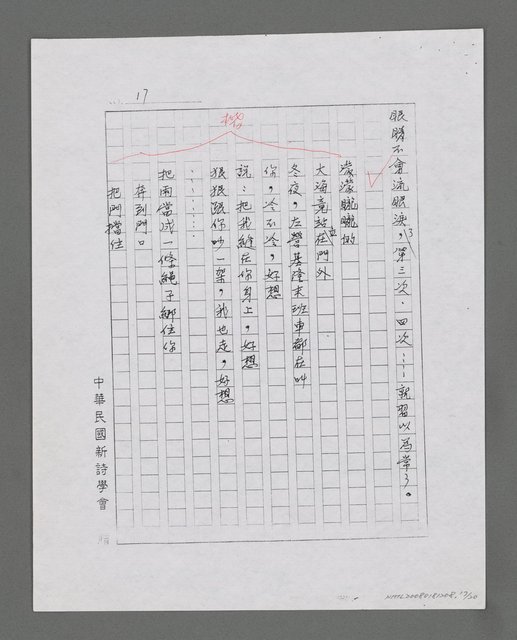 17
眼睛不會流眼淚了，第三次、四次……就習以為常了。
濛濛朧朧的
大海竟站在門外
冬夜，左營基隆末班車都在叫
你，冷不冷，好想
說：把我縫在你身上，好想
狠狠跟你吵一架，我也走，好想
…………
把雨當成一條繩子綁住你
奔到門口
把門擋住
中華民國新詩學會
NMTL20080181208, 17/20